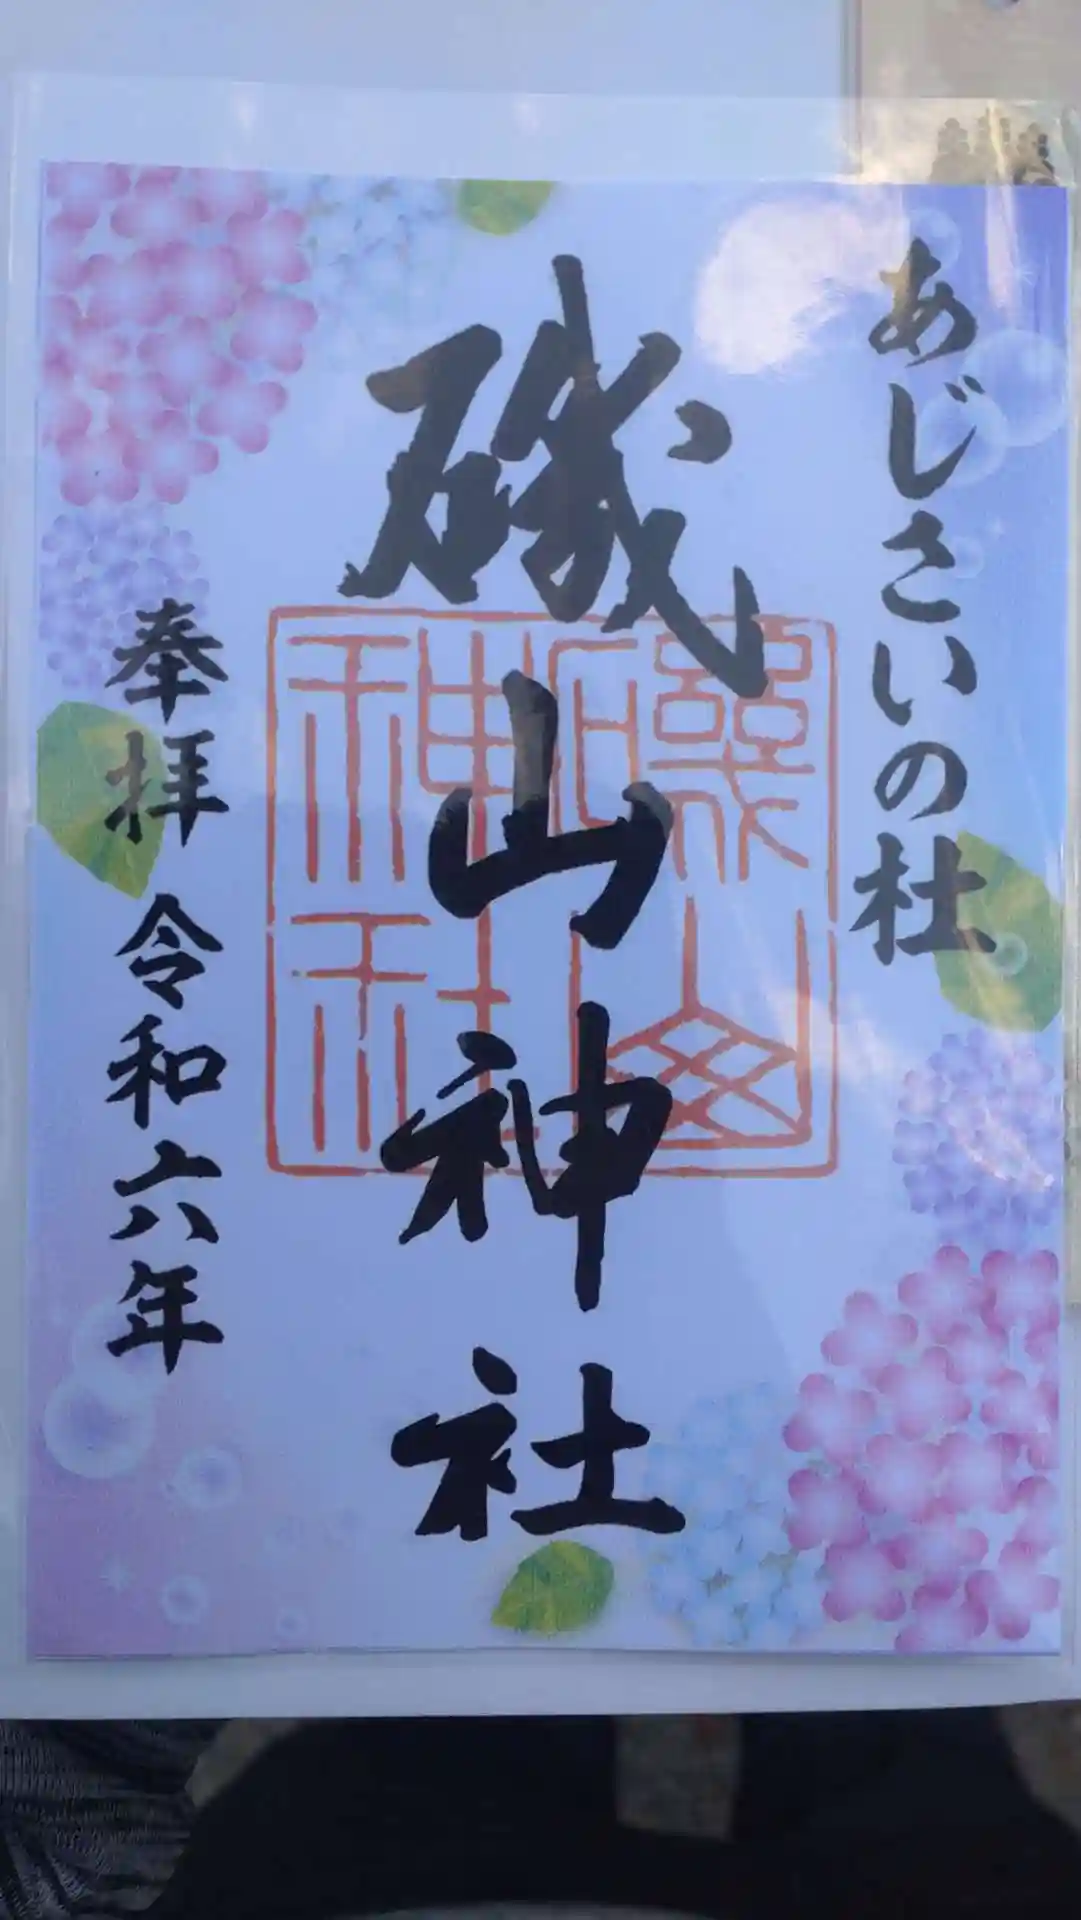 あじさいの杜
磯山神社
奉拝 令和六年
磯山
神社